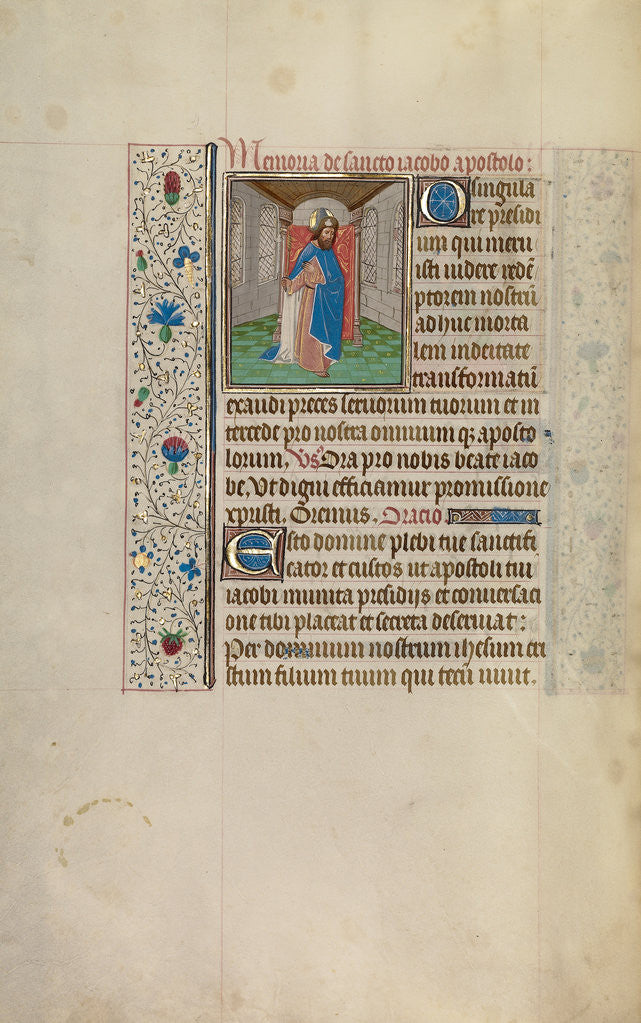 Memoria de sancto iacobo apostolo:
O singula
re presidi
um qui meru
isti uidere redē
ptorem nostrū
adhuc morta
lem indeitate
transformatū
exaudi preces seruorum tuorum et in
tercede pro nostra omnium qz aposto
lorum, Vs Ora pro nobis beate iaco
be, Vt digni efficiamur promissione
xpristi. Oremus. Oracio.
Esto domine plebi tue sanctifi
cator et custos ut apostoli tui
iacobi munita presidijs et conuersaci
one tibi placeat et secreta deseruiat:
Per dominum nostrum ihesum cri
stum filium tuum qui tecū uiuit.